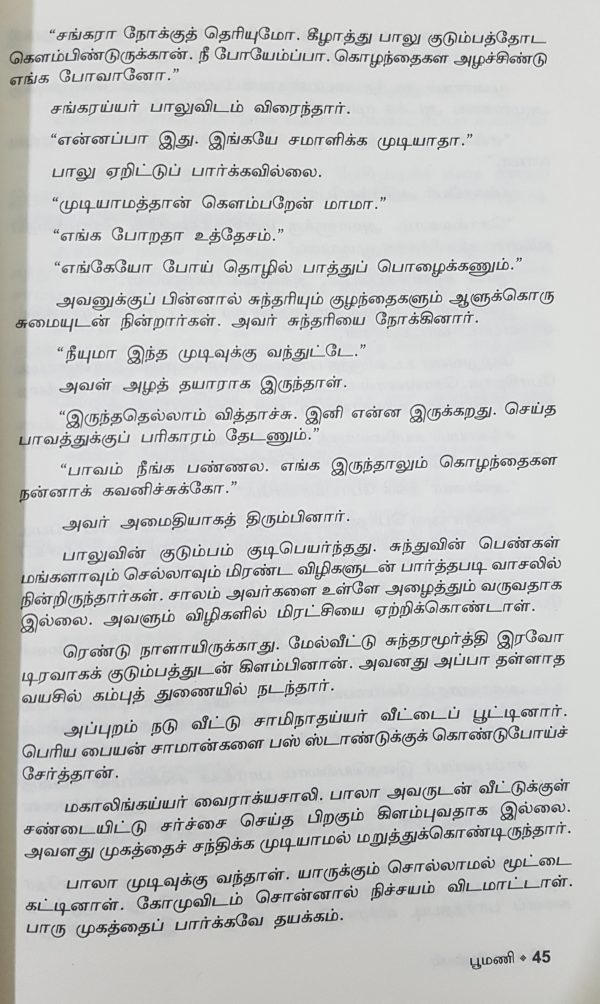 “சங்கரா நோக்குத் தெரியுமோ. கீழாத்து பாலு குடும்பத்தோட
கௌம்பிண்டுருக்கான். நீ போயேம்ப்பா. கொழந்தைகள அழச்சிண்டு
எங்க போவானோ.”
சங்கரய்யர் பாலுவிடம் விரைந்தார்.
“என்னப்பா இது. இங்கயே சமாளிக்க முடியாதா.”
பாலு ஏறிட்டுப் பார்க்கவில்லை.
“முடியாமத்தான் கௌம்பறேன் மாமா.”
“எங்க போறதா உத்தேசம்.”
“எங்கேயோ போய் தொழில் பாத்துப் பொழைக்கணும்.”
அவனுக்குப் பின்னால் சுந்தரியும் குழந்தைகளும் ஆளுக்கொரு
சுமையுடன் நின்றார்கள். அவர் சுந்தரியை நோக்கினார்.
“நீயுமா இந்த முடிவுக்கு வந்துட்டே.”
அவள் அழத் தயாராக இருந்தாள்.
“இருந்ததெல்லாம் வித்தாச்சு. இனி என்ன இருக்கறது. செய்த
பாவத்துக்குப் பரிகாரம் தேடணும்.”
“பாவம் நீங்க பண்ணல. எங்க இருந்தாலும் கொழந்தைகள
நன்னாக் கவனிச்சுக்கோ.”
அவர் அமைதியாகத் திரும்பினார்.
பாலுவின் குடும்பம் குடிபெயர்ந்தது. சுந்துவின் பெண்கள்
மங்களாவும் செல்லாவும் மிரண்ட விழிகளுடன் பார்த்தபடி வாசலில்
நின்றிருந்தார்கள். சாலம் அவர்களை உள்ளே அழைத்தும் வருவதாக
இல்லை. அவளும் விழிகளில் மிரட்சியை ஏற்றிக்கொண்டாள்.
ரெண்டு நாளாயிருக்காது. மேல்வீட்டு சுந்தரமூர்த்தி இரவோ
டிரவாகக் குடும்பத்துடன் கிளம்பினான். அவனது அப்பா தள்ளாத
வயசில் கம்புத் துணையில் நடந்தார்.
அப்புறம் நடு வீட்டு சாமிநாதய்யர் வீட்டைப் பூட்டினார்.
பெரிய பையன் சாமான்களை பஸ் ஸ்டாண்டுக்குக் கொண்டுபோய்ச்
சேர்த்தான்.
மகாலிங்கய்யர் வைராக்யசாலி. பாலா அவருடன் வீட்டுக்குள்
சண்டையிட்டு சர்ச்சை செய்த பிறகும் கிளம்புவதாக இல்லை.
அவளது முகத்தைச் சந்திக்க முடியாமல் மறுத்துக்கொண்டிருந்தார்.
பாலா முடிவுக்கு வந்தாள். யாருக்கும் சொல்லாமல் மூட்டை
கட்டினாள். கோமுவிடம் சொன்னால் நிச்சயம் விடமாட்டாள்.
பாரு முகத்தைப் பார்க்கவே தயக்கம்.
பூமணி ❖ 45